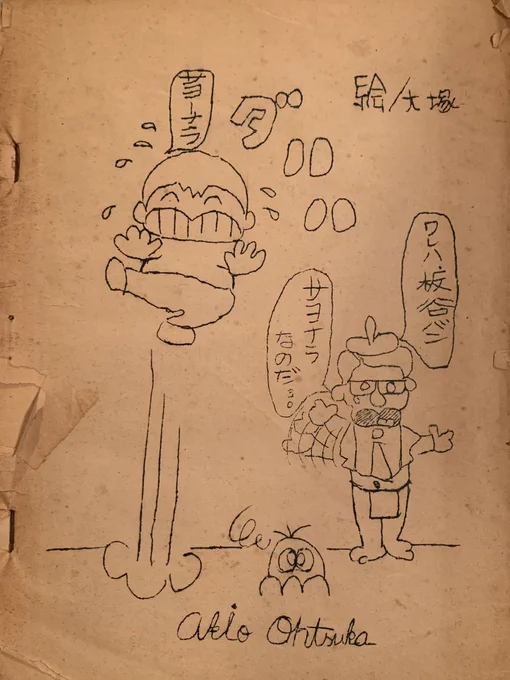 絵/大塚
サヨーナラ
ダ
ワレハ板谷
サヨナラ
なのだ。。。
Akio Ohtsuka